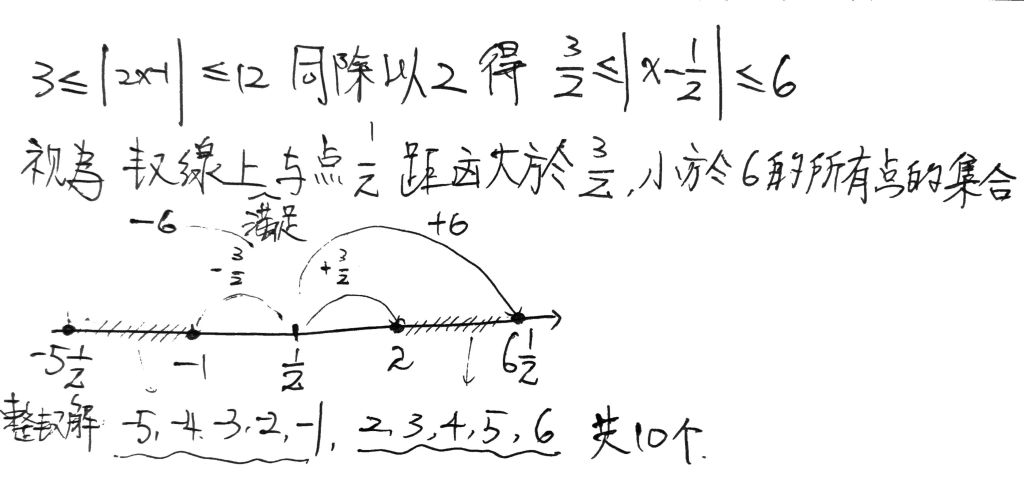 3≤|2x-1|≤12 同除以2 得 3/2≤|x-1/2|≤6
视为 数線上与点1/2 距离大於3/2,小於6的所有点的集合
满足
-6 +6
-3/2 +3/2
-5 1/2 -1 1/2 2 6 1/2
整数解 -5,-4,-3,-2,-1, 2,3,4,5,6 共10个.